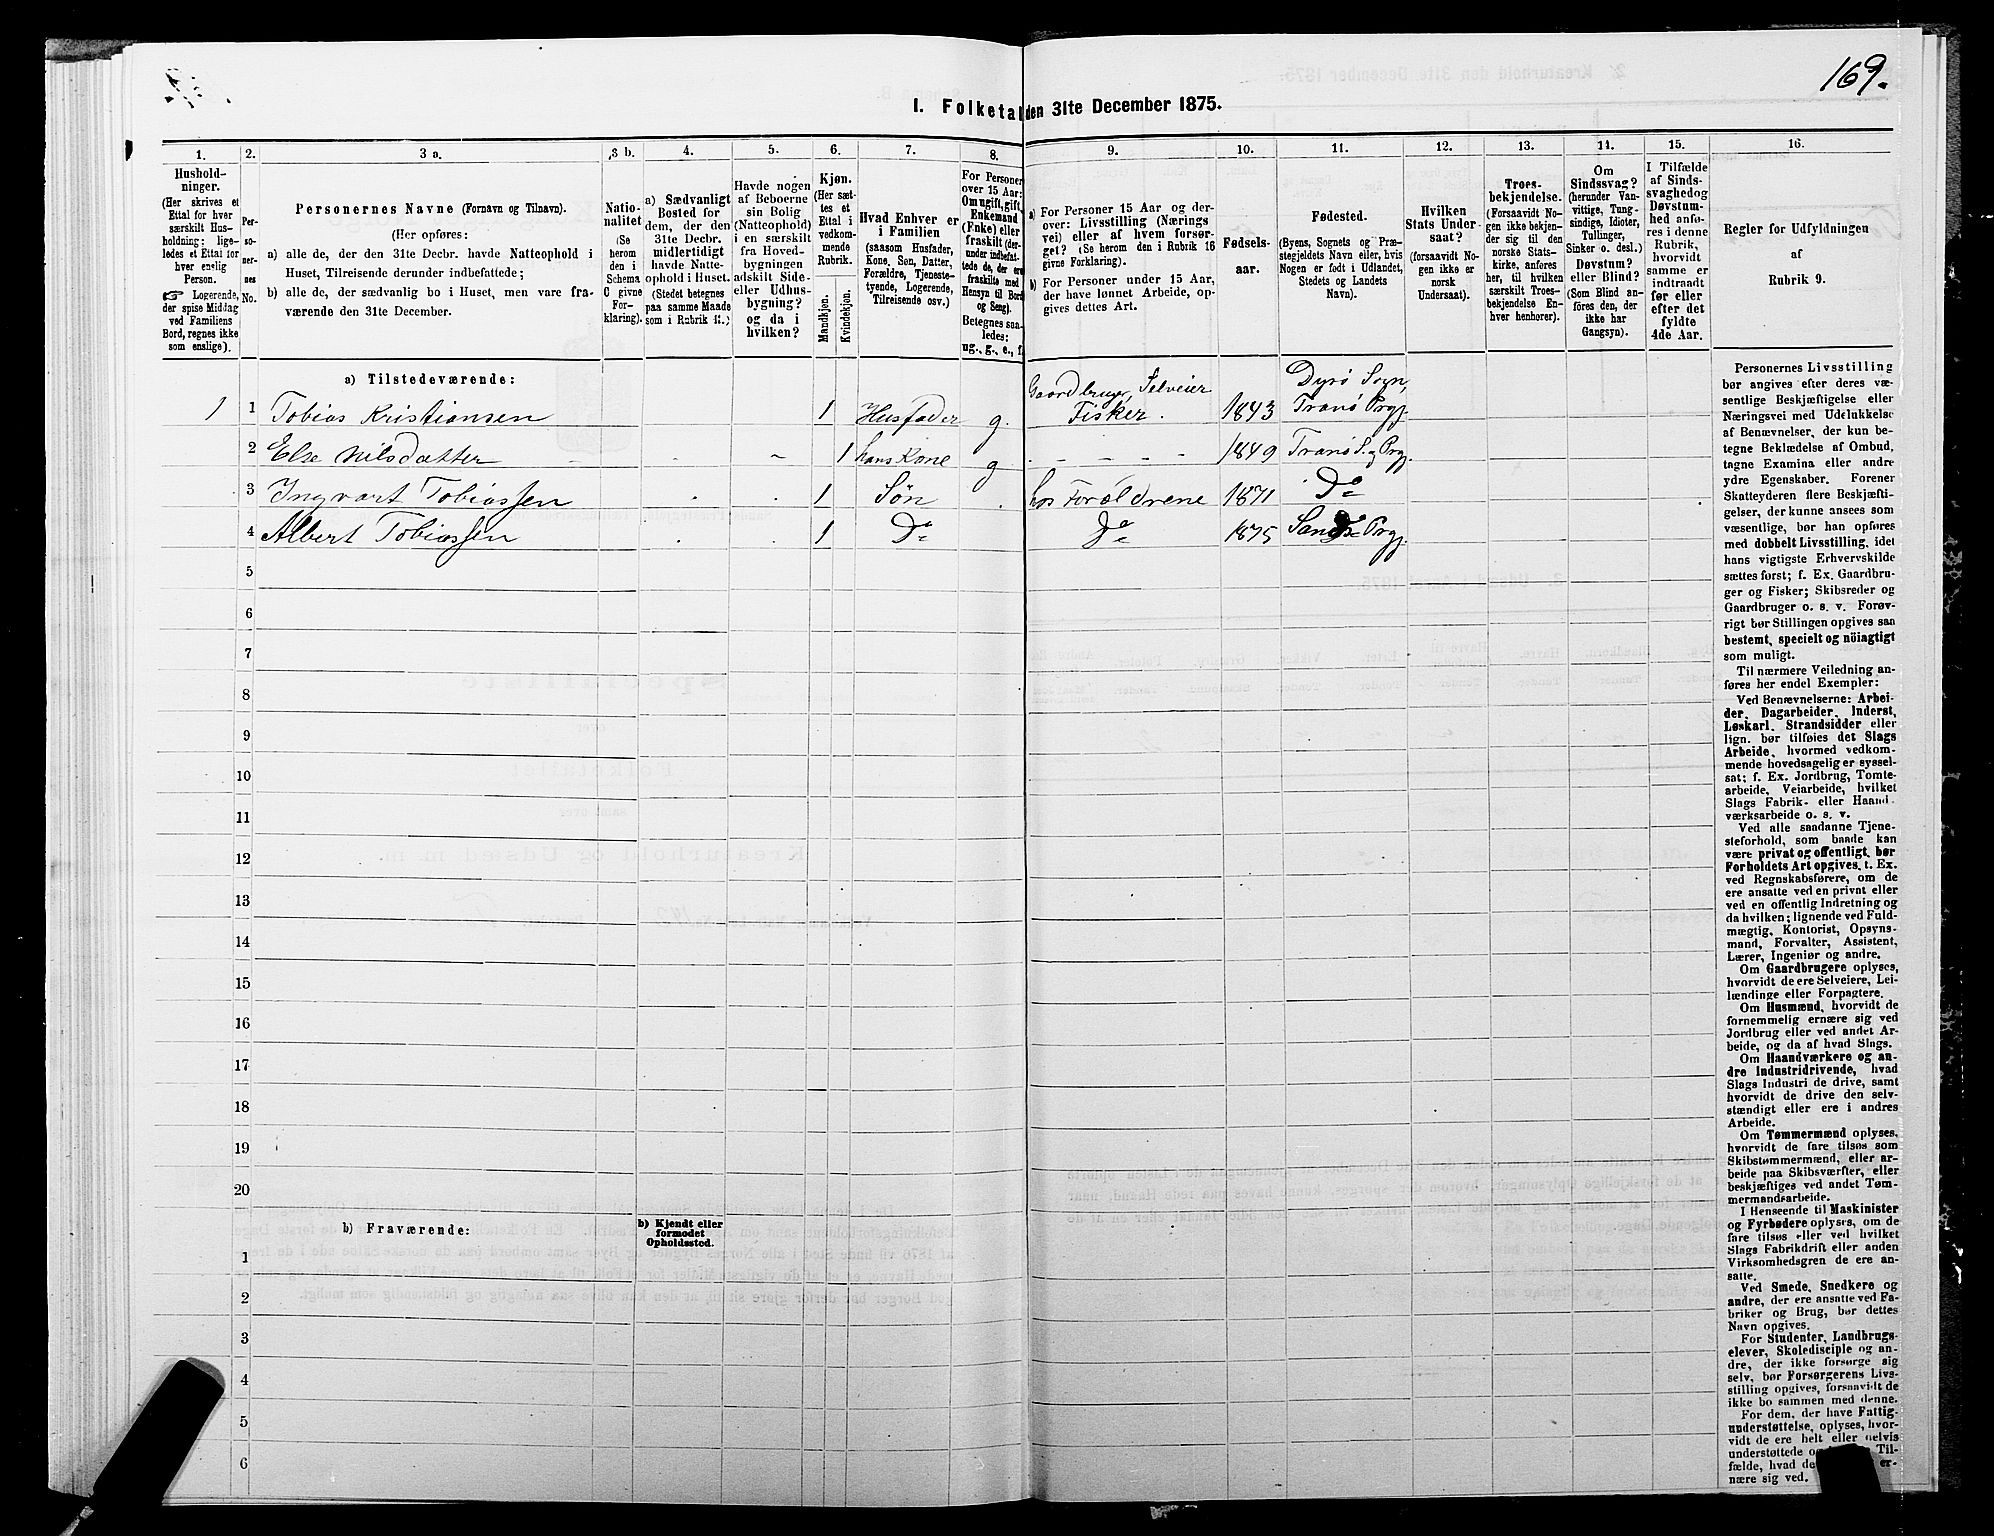 169.
I. Folketal den 31te December 1875.
1.
Hushold-
ninger.
(Her skrives et
Ettal for hver
særskilt Hus-
holdning; lige-
ledes et Ettal for
hver enslig
Person.
☞ Logerende,
der spise Middag
ved Familiens
Bord, regnes ikke
som enslige).
2.
Per-
so-
ner-
nes
No.
3 a.
Personernes Navne (Fornavn og Tilnavn).
(Her opføres:
a) alle de, der den 31te Decbr. havde Natteophold i
Huset, Tilreisende derunder indbefattede;
b) alle de, der sædvanlig bo i Huset, men vare fra-
værende den 31te December.
3 b.
Natio-
nalitet
(Se
herom
den i
Schema
C givne
For-
klaring).
4.
a) Sædvanligt
Bosted for
dem, der den
31te Decbr.
midlertidigt
havde Natte-
ophold i Huset.
(Stedet betegnes
paa samme Maade
som i Rubrik 11.)
5.
Havde nogen
af Beboerne
sin Bolig
(Natteophold)
i en særskilt
fra Hoved-
bygningen
adskilt Side-
eller Udhus-
bygning?
og da i
hvilken?
6.
Kjøn.
(Her sæt-
tes et
Ettal i
vedkom-
mende
Rubrik.
Mandkjøn.
Kvindekjøn.
7.
Hvad Enhver er
i Familien
(saasom Husfader,
Kone, Søn, Datter,
Forældre, Tjeneste-
tyende, Logerende,
Tilreisende osv.)
8.
For Personer
over 15 Aar:
Om ugift, gift,
Enkemand
(Enke) eller
fraskilt (der-
under indbefat-
tede de, der ere
fraskilte med
Hensyn til Bord
og Seng).
Betegnes saa-
ledes:
ug., g., e., f.
9.
a) For Personer 15 Aar og der-
over: Livsstilling (Nærings-
vei) eller af hvem forsør-
get? (Se herom den i Rubrik 16
givne Forklaring).
b) For Personer under 15 Aar,
der have lønnet Arbeide, op-
gives dettes Art.
10.
Fødsels-
aar.
11.
Fødested.
(Byens, Sognets og Præ-
stegjeldets Navn eller, hvis
Nogen er født i Udlandet,
Stedets og Landets
Navn).
12.
Hvilken
Stats Under-
saat?
(forsaavidt No-
gen ikke er
norsk
Undersaat).
13.
Troes-
bekjendelse.
(Forsaavidt No-
gen ikke bekjen-
der sig til den
norske Stats-
kirke, anføres
her, til hvilken
særskilt Troes-
bekjendelse En-
hver henhører).
14.
Om
Sindssvag?
(herunder Van-
vittige, Tung-
sindige, Idioter,
Tullinger,
Sinker o. desl.)
Døvstum?
eller Blind?
(Som Blind an-
føres den, der
ikke har
Gangsyn).
15.
I Tilfælde
af Sinds-
svaghed og
Døvstum-
hed anfø-
res i denne
Rubrik,
hvorvidt
samme er
indtraadt
før eller
efter det
fyldte
4de Aar.
16.
Regler for Udfyldningen
af
Rubrik 9.
a) Tilstedeværende:
1 1 Tobias Kristiansen 1 Husfader g. Gaardbruger, Selveier Fisker. 1843 Dyrø Sogn, Tranø Prgj.
2 Else Nilsdatter 1 hans Kone g 1849 Tranø S. og Prgj.
3 Ingvart Tobiassen 1 Søn hos Forældrene 1871 Do
4 Albert Tobiassen 1 Do Do 1875 Sands Prgj.
5
6
7
8
9
10
11
12
13
14
15
16
17
18
19
20
b) Fraværende:
b) Kjendt eller
formodet
Opholdssted.
1
2
3
4
5
6
Personernes Livsstilling
bør angives efter deres væ-
sentlige Beskjæftigelse eller
Næringsvei med Udelukkelse
af Benævnelser, der kun be-
tegne Beklædelse af Ombud,
tagne Examina eller andre
ydre Egenskaber. Forener
Skatteyderen flere Beskjæfti-
gelser, der kunne ansees som
væsentlige, bør han opføres
med dobbelt Livsstilling, idet
hans vigtigste Erhvervskilde
sættes først; f. Ex. Gaardbru-
ger og Fisker; Skibsreder og
Gaardbruger o. s. v. Forøv-
rigt bør Stillingen opgives saa
bestemt, specielt og nöiagtigt
som muligt.
Til nærmere Veiledning an-
føres her endel Exempler:
Ved Benævnelserne: Arbei-
der, Dagarbeider, Inderst,
Løskarl, Strandsidder eller
lign. bør tilføies det Slags
Arbeide, hvormed vedkom-
mende hovedsagelig er syssel-
sat; f. Ex. Jordbrug, Tomte-
arbeide, Veiarbeide, hvilket
Slags Fabrik- eller Haand-
værksarbeide o. s. v.
Ved alle saadanne Tjene-
steforhold, som baade kan
være privat og offentligt, bør
Forholdets Art opgives, t. Ex.
ved Regnskabsførere, om de
ere ansatte ved en privat eller
ved en offentlig Indretning og
da hvilken; lignende ved Fuld-
mægtig, Kontorist, Opsyns-
mand, Forvalter, Assistent,
Lærer, Ingeniør og andre.
Om Gaardbrugere oplyses,
hvorvidt de ere Selveiere, Lei-
lændinge eller Forpagtere.
Om Husmænd, hvorvidt de
fornemmelig ernære sig ved
Jordbrug eller ved andet Ar-
beide, og da af hvad Slags.
Om Haandværkere og an-
dre Industridrivende, hvad
Slags Industri de drive, samt
hvorvidt de drive den selv-
stændigt eller ere i andres
Arbeide.
Om Tømmermænd oplyses,
hvorvidt de fare tilsøs som
Skibstømmermænd, eller ar-
beide paa Skibsværfter, eller
beskjæftiges ved andet Tøm-
mermandsarbeide.
I Henseende til Maskinister
og Fyrbødere oplyses, om de
fare tilsøs eller ved hvilket
Slags Fabrikdrift eller anden
Virksomhedsgren de ere an-
satte.
Ved Smede, Snedkere og
andre, der ere ansatte ved Fa-
briker og Brug, bør dettes
Navn opgives.
For Studenter, Landbrugs-
elever, Skoledisciple og an-
dre, der ikke forsørge sig
selv, bør Forsørgerens Livs-
stilling opgives, forsaavidt de
ikke bo sammen med denne.
For dem, der have Fattig-
understøttelse, oplyses, hvor-
vidt de ere helt eller delvis
understøttede og Til-
fælde, hvad de er-
nære sig ved.